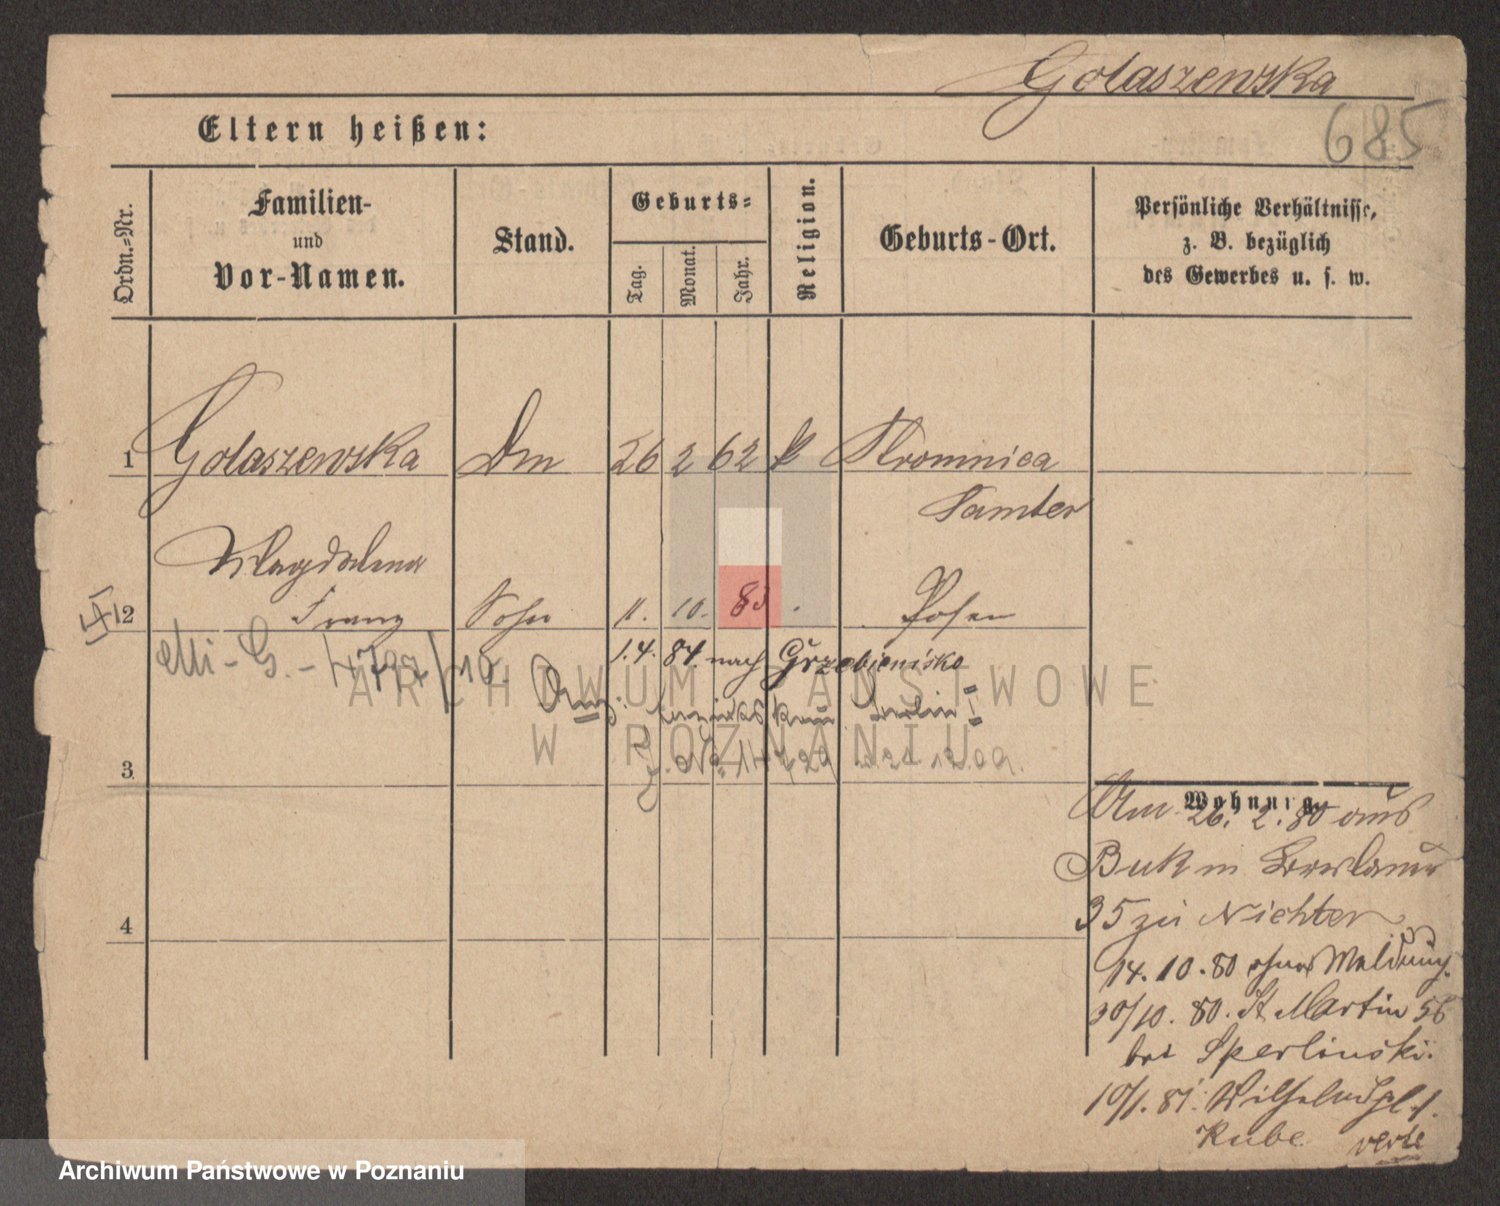 Golaszewska
685
Eltern heißen:
Ordn.-Nr.
Familien-
und
Vor-Namen.
Stand.
Geburts-
Tag.
Monat.
Jahr.
Religion.
Geburts-Ort.
Persönliche Verhältnisse,
z. B. bezüglich
des Gewerbes u. s. w.
1 Golaszewska Dm 26 2 62 k Kromnica
Samter
Magdalena
2 Franz Sohn 11. 10. 83 Posen
1.4.84. nach Grzebienisko
3
4
Wohnung
Am 26. 2. 80 aus
Buk n Breslauer
35 zu Richter
14.10.80 ohne Meldung.
30/10.80. St Martin 56
bei Sperlinski.
10/1.81. Wilhelmspl.
Kube verte
ARCHIWUM PAŃSTWOWE
W POZNANIU
Archiwum Państwowe w Poznaniu